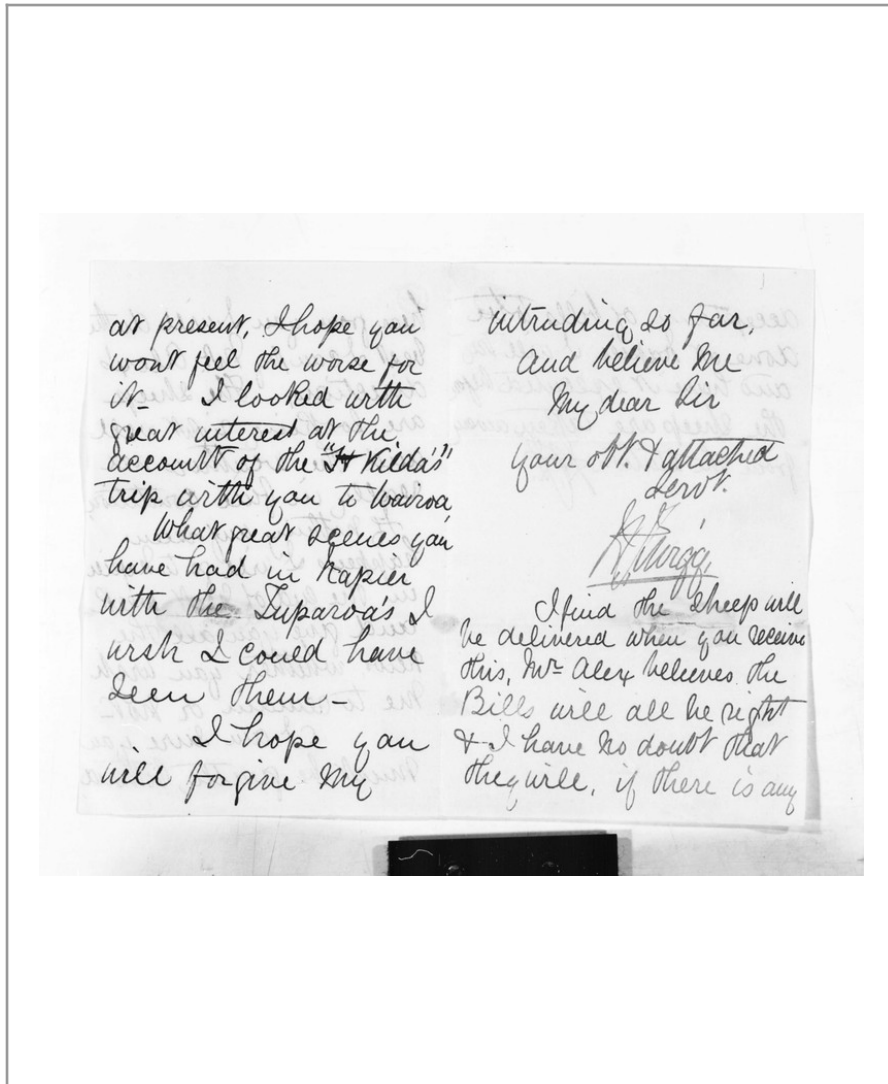 at present, I hope you
wont feel the worse for
it – I looked with
great interest at the
accounts of the "St Kilda's"
trip with you to Wairoa
What great scenes you
have had in Napier
with the Tuparoa's I
wish I could have
seen them –
I hope you
will forgive my
intruding so far,
and believe me
My dear Sir
your obt. & attached
Servt.
I find the sheep will
be delivered when you receive
this, Mr Alex believes the
Bills will all be right
& I have no doubt that
they will, if there is any